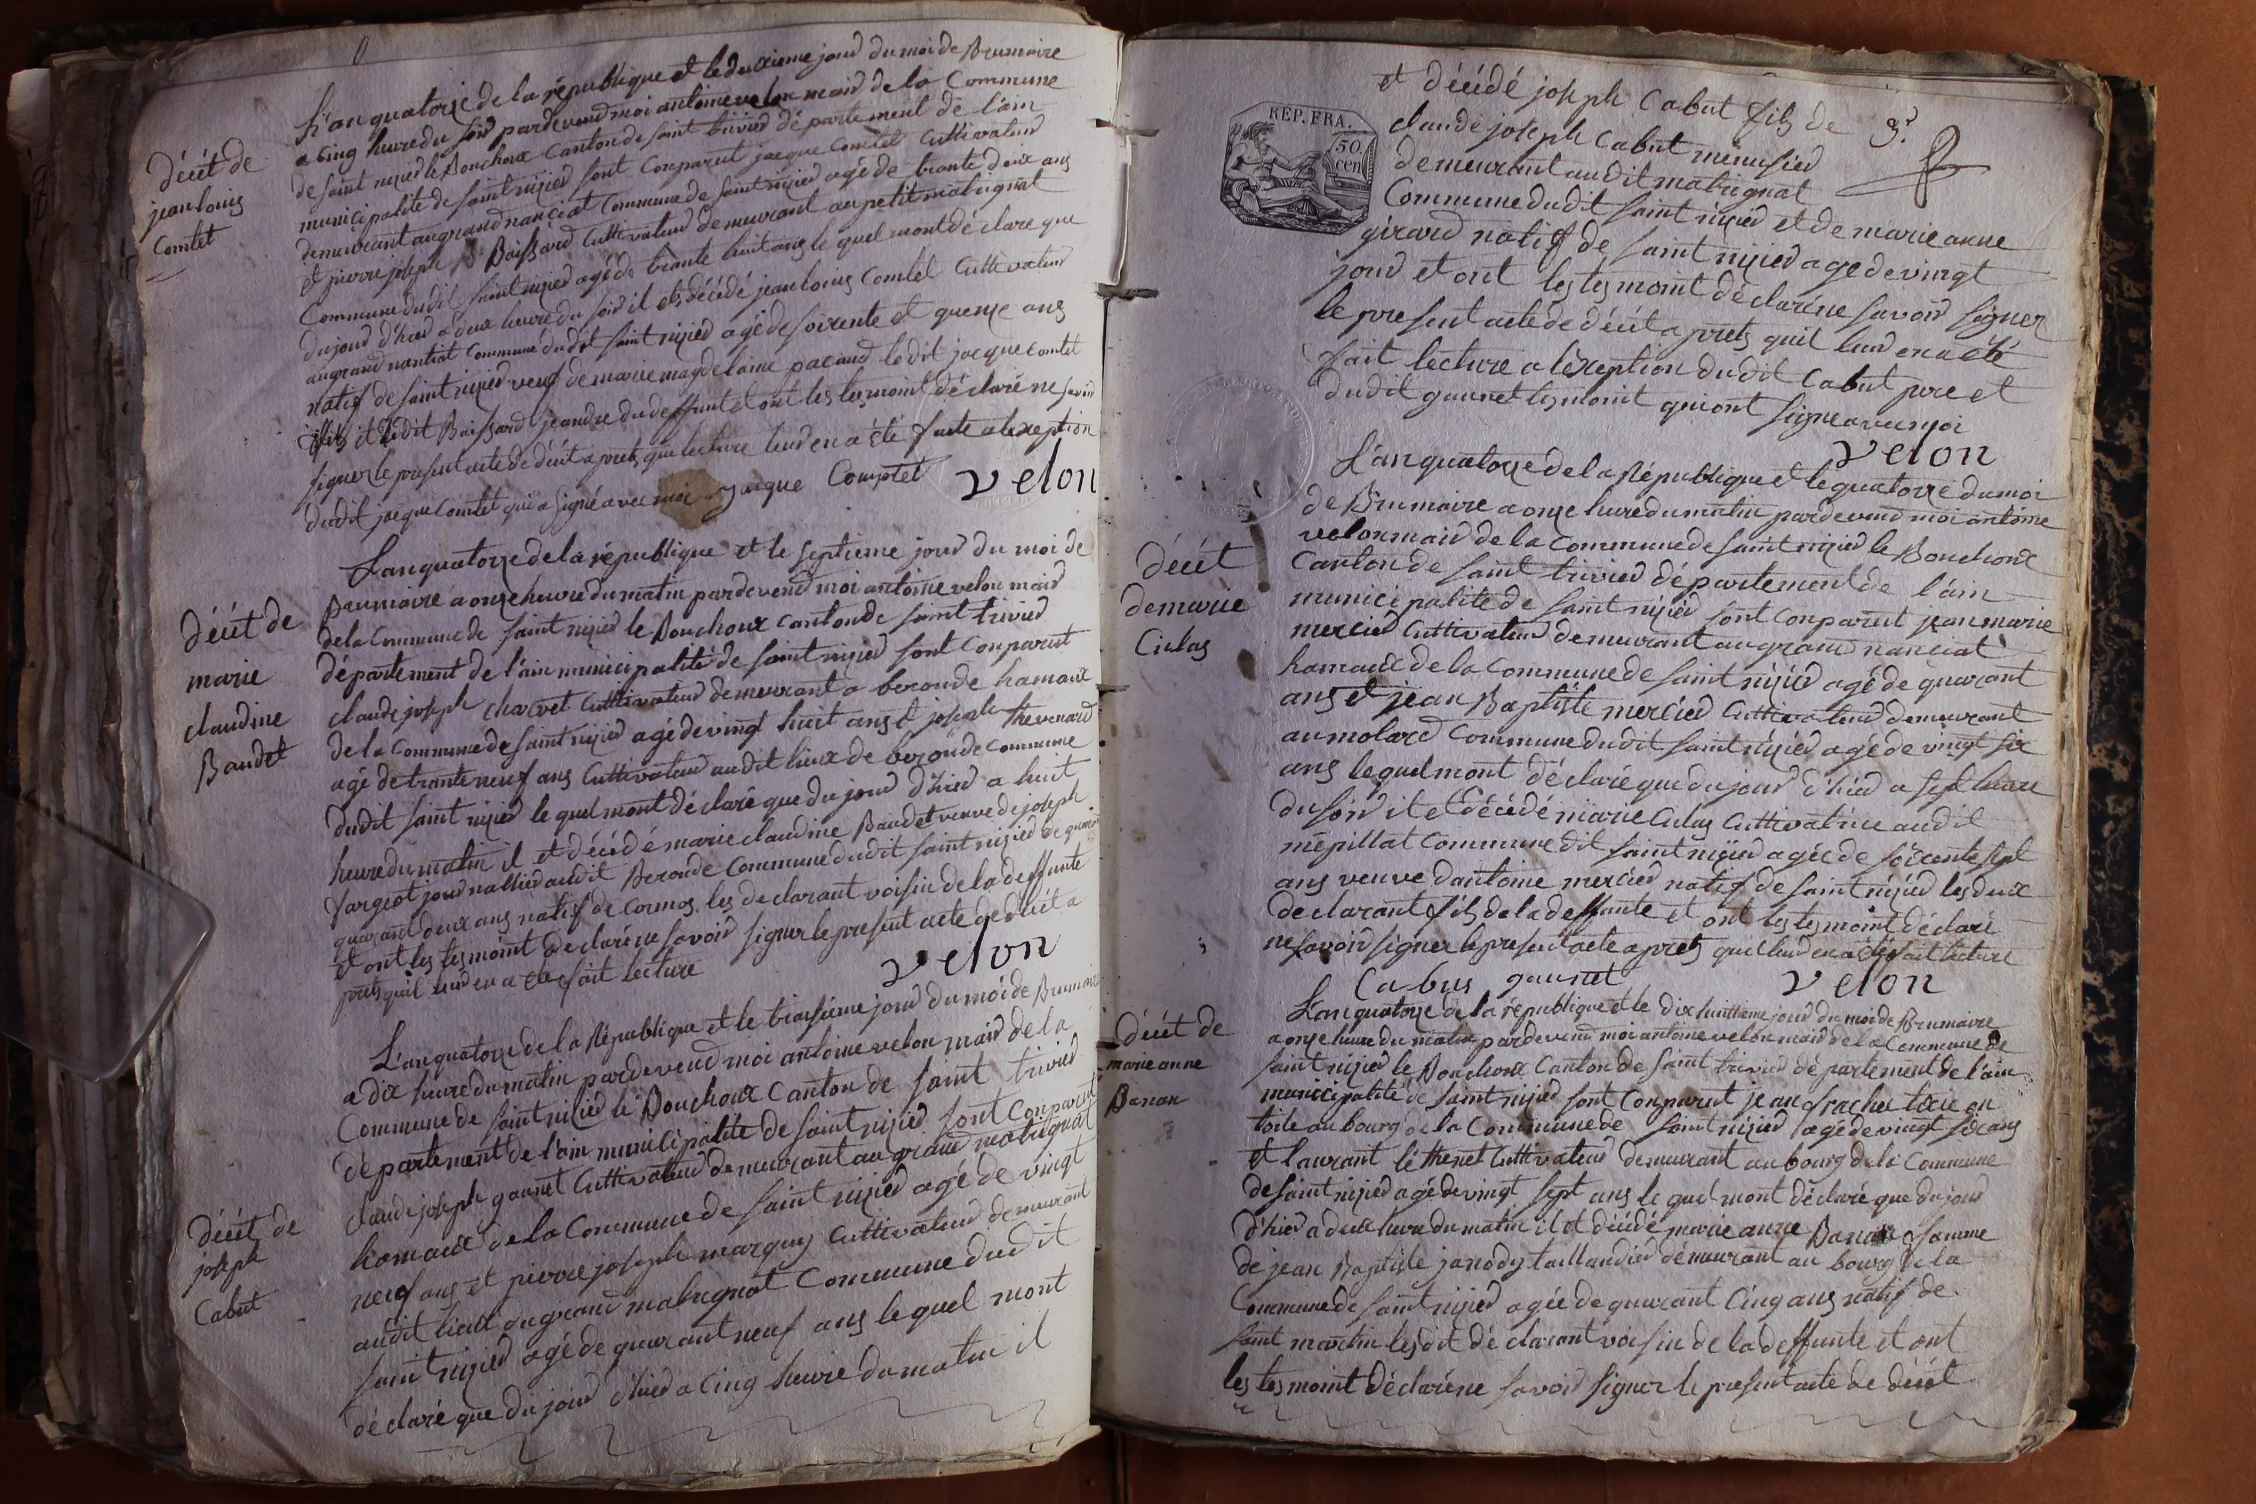 L'an quatorze de la république et le deuxieme jour du moi de Brumaire
a cinq heure du soir pardevend moi antoine velon maid de la Commune
de saint nizied le Bouchoux Canton de saint trivied département de l'ain
municipalité de saint nizied sont Conparut jacque Comtet Cultivateur
demeurant au grand nanciat Commune de saint nizied agé de trante deux ans
et pierre joseph Boissard Cultivateur demeurant au petit matrignat
Commune dudit saint nizied agé de trante huit ans le quel mont déclaré que
du jour d'hier a deux heure du soir il et décédé jean louis Comtet Cultivateur
au grand nantiat Commune dudit saint nizied agé de soixente et quenze ans
natif de saint nizied veuf de marie magdelaine pacaud ledit jacque comtet
fils et ledit Boissard jeandre du deffunt et ont les tesmoint déclaré ne savoir
signer le present acte de décèt a prets que lecture leur en a été faite a lexeption
dudit jacque Comtet qui a signé avec moi jacque Comptet velon
décèt de
jean louis
Comtet
L'an quatorze de la république et le septieme jour du moi de
Brumaire a onze heure du matin pardevend moi antoine velon maid
de la Commune de saint nizied le Bouchoux canton de saint trivied
département de l'ain municipalité de saint nizied sont Conparut
claude joseph charvet Cultivateur demeurant a beronde hamaux
de la Commune de saint nizied agé de vingt huit ans et joseph thevenard
agé de trante neuf ans Cultivateur audit lieux de beronde commune
dudit saint nizied le quel mont déclaré que du jour d'hier a huit
heure du matin il et décédé marie claudine Baudet veuve de joseph
fargeot journallier audit Beronde Commune dudit saint nizied
quarant deux ans natif de Cormos les declarant voisin de la deffunte
et ont les tesmoint declaré ne savoir signer le present acte de décèt a
prets quil leur en a été fait lecture velon
décèt de
marie
claudine
Baudet
L'an quatorze de la République et le troisieme jour du moi de Brumaire
a dix heure du matin pardevend moi antoine velon maid de la
Commune de saint nizied le Bouchoux Canton de saint trivied
département de l'ain municipalité de saint nizied sont Conparut
claude joseph gaunet Cultivateur demeurant au grand matrignat
hamaux de la Commune de saint nizied agé de vingt
neuf ans et pierre joseph marquy Cultivateur demeurant
audit lieux du grand matrignat Commune dudit
saint nizied agé de quarant neuf ans le quel mont
déclaré que du jour d'hier a cinq heure du matin il
décèt de
joseph
Cabut
REP. FRA.
50
cen
et décédé joseph Cabut fils de
claude joseph Cabut menusied
demeurant audit matrignat
Commune dudit saint nizied et de marie anne
girard natif de saint nizied agé de vingt
jour et ont les tesmoint déclaré ne savoir signer
le present acte de décèt a prets quil leur en a été
fait lecture a lexeption dudit Cabut pere et
dudit gaunet tesmoint qui ont signe avec moi
velon
L'an quatorze de la République et le quatorze du moi
de Brumaire a onze heure du matin pardevend moi antoine
velon maid de la Commune de saint nizied le Bouchoux
Canton de saint trivied département de l'ain
municipalité de saint nizied sont Conparut jean marie
mercied Cultivateur demeurant au grand nanciat
hamaux de la Commune de saint nizied agé de quarant
ans et jean Baptiste mercied Cultivateur demeurant
au molard Commune dudit saint nizied agé de vingt six
ans le quel mont déclaré que du jour d'hier a sept heure
du soir il et décédé marie Culas Cultivatrice audit
mepillat Commune dit saint nizied agée de soixente sept
ans veuve dantoine mercied natif de saint nizied les deux
declarant fils de la deffunte et ont les tesmoint déclaré
ne savoir signer le present acte a prets que leur en a été fait lecture
Cabus gaunet velon
décèt
de marie
Culas
L'an quatorze de la république et le dix huittieme jour du moi de Brumaire
a onze heure du matin pardevend moi antoine velon maid de la Commune de
saint nizied le Bouchoux Canton de saint trivied département de l'ain
municipalité de saint nizied sont Conparut jean frachet tixie en
toile au bourg de la Commune de saint nizied agé de vingt six ans
et laurant léthenet Cultivateur demeurant au bourg de la Commune
de saint nizied agé de vingt sept ans le quel mont déclaré que du jour
d'hier a deux heure du matin il et décédé marie anne Banan famme
de jean Baptiste janody taillandier demeurant au bourg de la
Commune de saint nizied agée de quarant Cinq ans natif de
saint martin lesdit déclarant voisin de la deffunte et ont
les tesmoint déclaré ne savoir signer le present acte de décèt
décèt de
marie anne
Banan